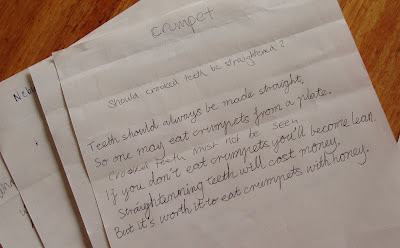 crumpet
Should crooked teeth be straightened?
Teeth should always be made straight,
So one may eat crumpets from a plate.
Crooked teeth must not be seen
If you don't eat crumpets you'll become lean.
Straightenning teeth will cost money,
But it's worth it to eat crumpets with honey.